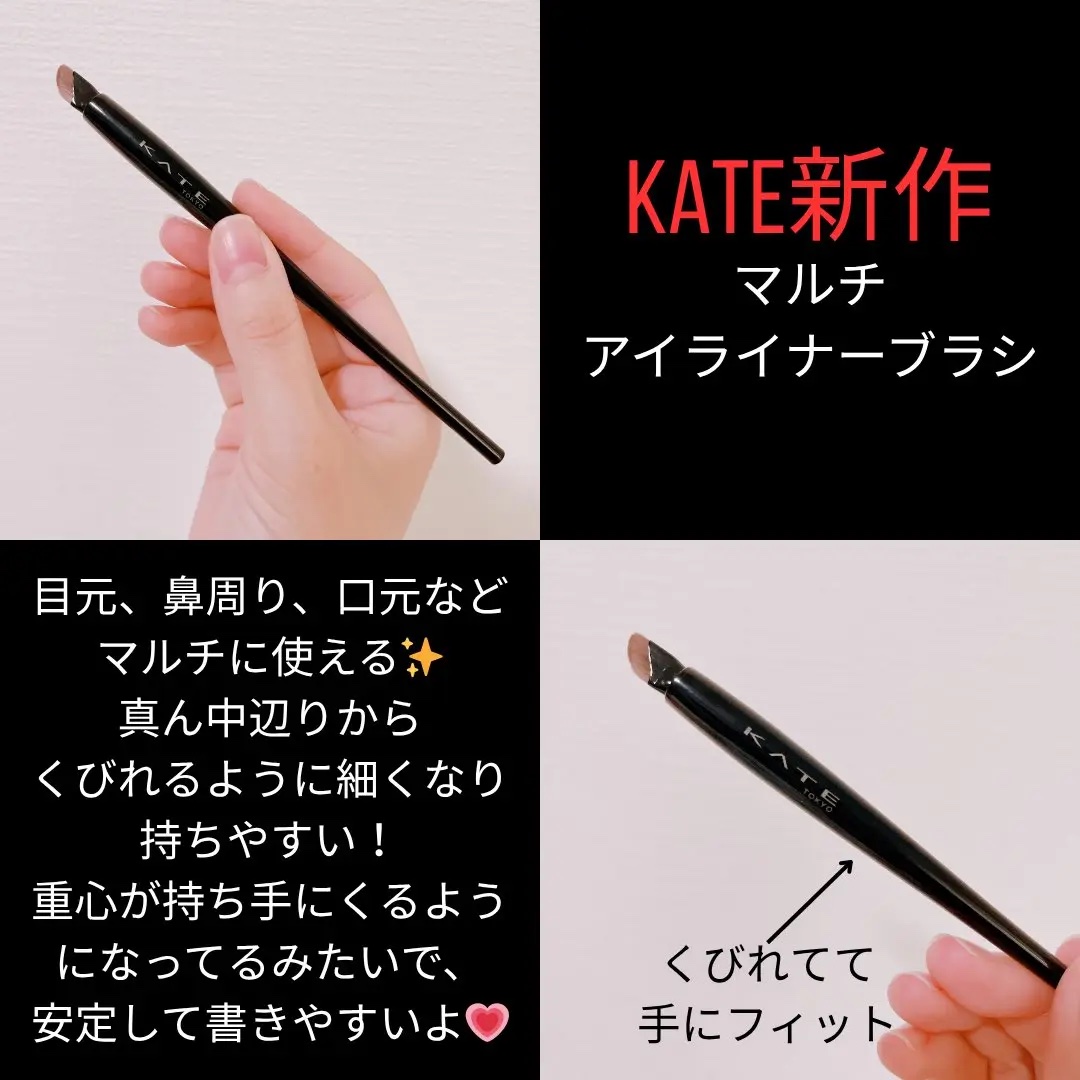 KATE
TOKYO
KATE新作
マルチ
アイライナーブラシ
目元、鼻周り、口元など
マルチに使える✨
真ん中辺りから
くびれるように細くなり
持ちやすい！
重心が持ち手にくるよう
になってるみたいで、
安定して書きやすいよ💗
KATE
TOKYO
くびれてて
手にフィット